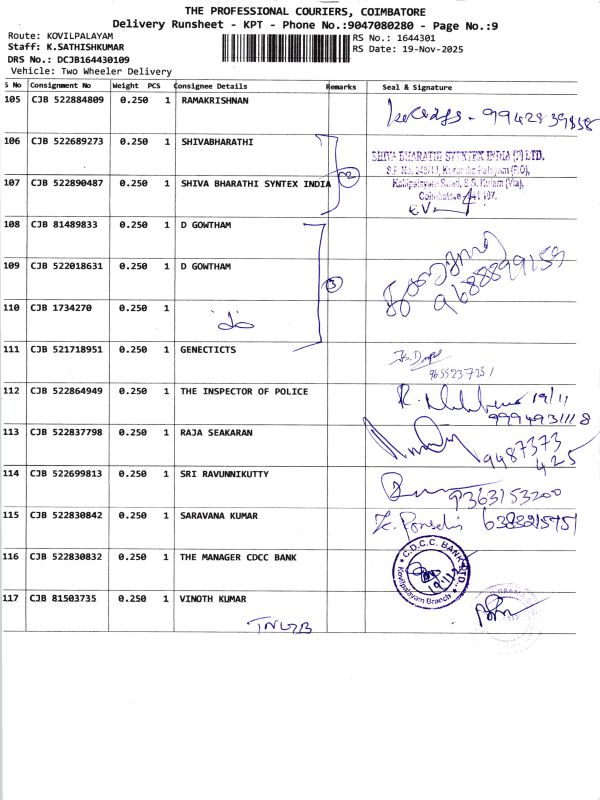 THE PROFESSIONAL COURIERS, COIMBATORE
Delivery Runsheet - KPT - Phone No.:9047080280 - Page No.:9
Route: KOVILPALAYAM
RS No.: 1644301
Staff: K.SATHISHKUMAR
RS Date: 19-Nov-2025
DRS No.: DCJB164430109
Vehicle: Two Wheeler Delivery
S No Consignment No Weight PCS Consignee Details Remarks Seal & Signature
105 CJB 522884809 0.250 1 RAMAKRISHNAN
106 CJB 522689273 0.250 1 SHIVABHARATHI
SHIVA BHARATHI SYNTEX INDIA (P) LTD.
107 CJB 522890487 0.250 1 SHIVA BHARATHI SYNTEX INDIA 2
108 CJB 81489833 0.250 1 D GOWTHAM
109 CJB 522018631 0.250 1 D GOWTHAM 3 9688899159
110 CJB 1734270 0.250 1
111 CJB 521718951 0.250 1 GENECTICTS
112 CJB 522864949 0.250 1 THE INSPECTOR OF POLICE 19/11
9994931118
113 CJB 522837798 0.250 1 RAJA SEAKARAN 9487373
425
114 CJB 522699813 0.250 1 SRI RAVUNNIKUTTY 9363153200
115 CJB 522830842 0.250 1 SARAVANA KUMAR
116 CJB 522830832 0.250 1 THE MANAGER CDCC BANK C.D.C.C. BANK LTD.
Kovilpalayam Branch
117 CJB 81503735 0.250 1 VINOTH KUMAR
TNGB